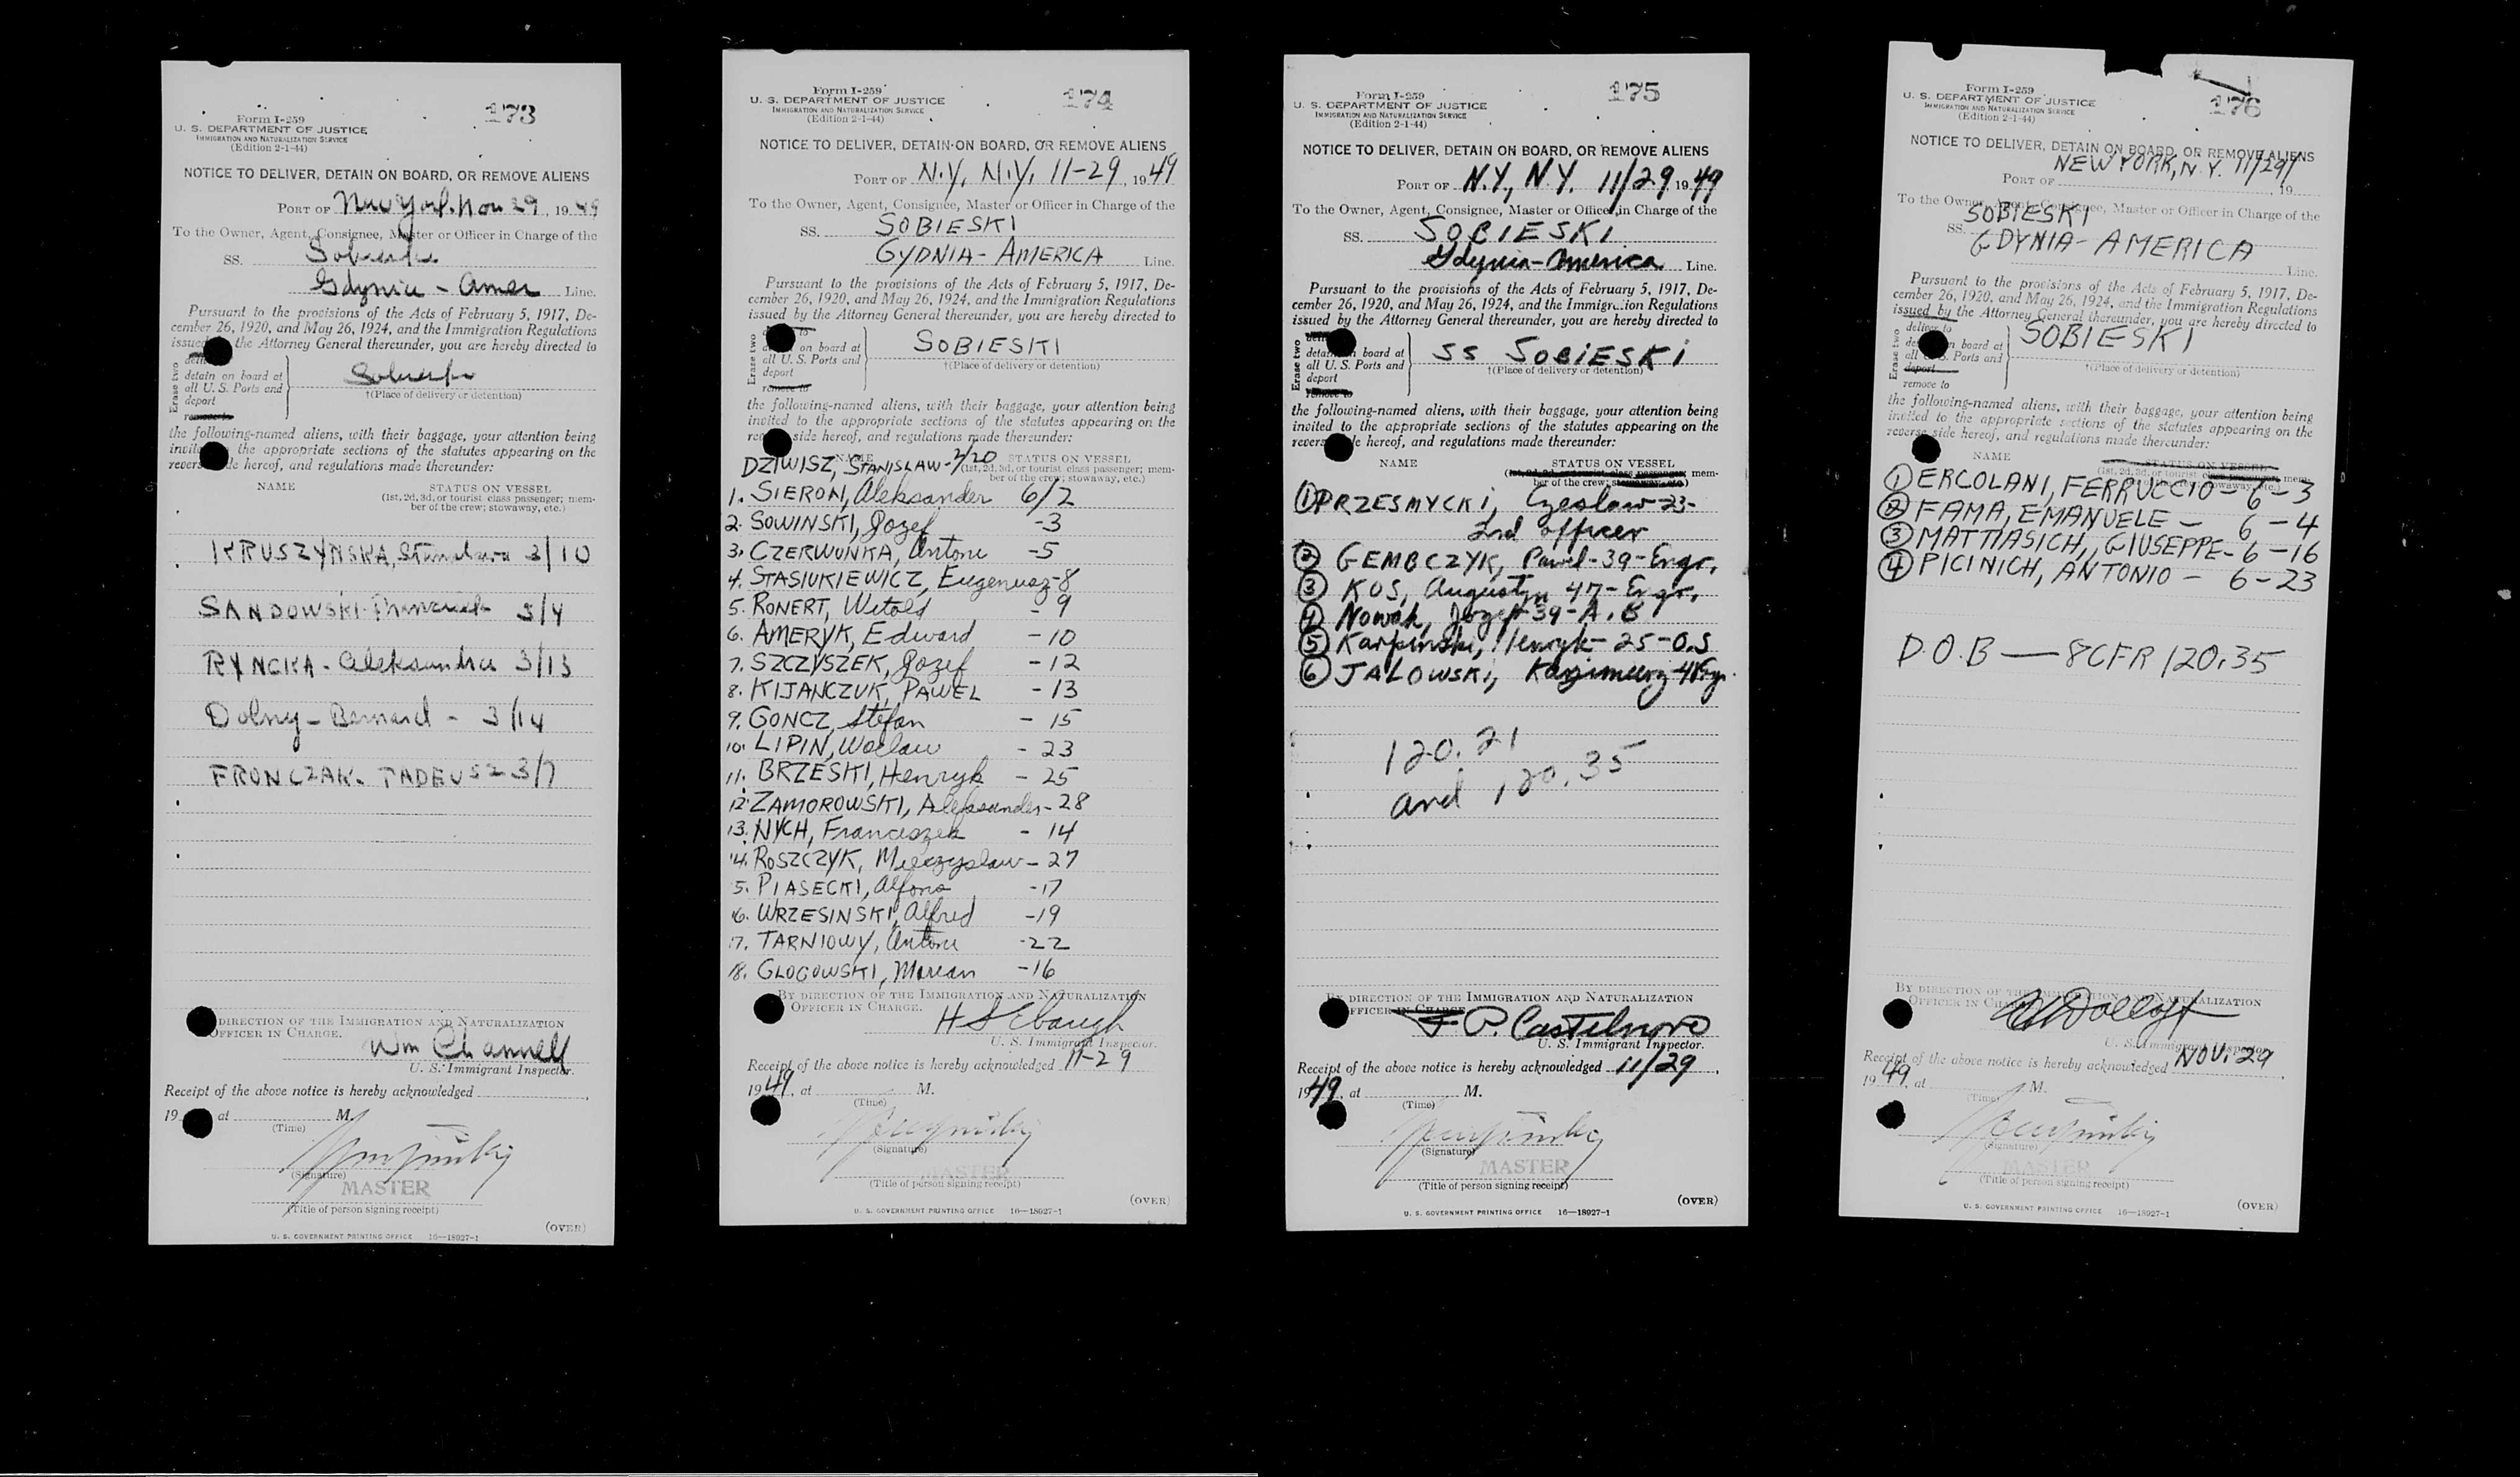 173
Form I-259
U. S. DEPARTMENT OF JUSTICE
IMMIGRATION AND NATURALIZATION SERVICE
(Edition 2-1-44)
NOTICE TO DELIVER, DETAIN ON BOARD, OR REMOVE ALIENS
PORT OF New York, Nov 29, 1949
To the Owner, Agent, Consignee, Master or Officer in Charge of the
SS. Sobieski
Gdynia - Amer Line.
Pursuant to the provisions of the Acts of February 5, 1917, De-
cember 26, 1920, and May 26, 1924, and the Immigration Regulations
issued the Attorney General thereunder, you are hereby directed to
Erase two
detain on board at
all U. S. Ports and
deport
remove to
Sobieski
†(Place of delivery or detention)
the following-named aliens, with their baggage, your attention being
the appropriate sections of the statutes appearing on the
hereof, and regulations made thereunder:
NAME STATUS ON VESSEL
(1st, 2d, 3d, or tourist class passenger; mem-
ber of the crew; stowaway, etc.)
KRUSZYNSKA, 3/10
SANDOWSKI 3/4
RYNCKA - Aleksandra 3/13
Dolny - Bernard - 3/14
FRONCZAK. TADEUSZ 3/7
DIRECTION OF THE IMMIGRATION AND NATURALIZATION
OFFICER IN CHARGE.
Wm Channell
U. S. Immigrant Inspector.
Receipt of the above notice is hereby acknowledged
19 at M.
(Time)
(Signature)
MASTER
(Title of person signing receipt)
(OVER)
U. S. GOVERNMENT PRINTING OFFICE 16—18927-1
174
Form I-259
U. S. DEPARTMENT OF JUSTICE
IMMIGRATION AND NATURALIZATION SERVICE
(Edition 2-1-44)
NOTICE TO DELIVER, DETAIN ON BOARD, OR REMOVE ALIENS
PORT OF N.Y, N.Y, 11-29, 1949
To the Owner, Agent, Consignee, Master or Officer in Charge of the
SS. SOBIESKI
GYDNIA - AMERICA Line.
Pursuant to the provisions of the Acts of February 5, 1917, De-
cember 26, 1920, and May 26, 1924, and the Immigration Regulations
issued by the Attorney General thereunder, you are hereby directed to
Erase two
on board at
all U. S. Ports and
deport
remove to
SOBIESKI
†(Place of delivery or detention)
the following-named aliens, with their baggage, your attention being
invited to the appropriate sections of the statutes appearing on the
side hereof, and regulations made thereunder:
NAME STATUS ON VESSEL
DZIWISZ, STANISLAW - 2/20
(1st, 2d, 3d, or tourist class passenger; mem-
ber of the crew; stowaway, etc.)
1. SIERON, Aleksander 6/2
2. SOWINSKI, Jozef -3
3. CZERWONKA, Antoni -5
4. STASIUKIEWICZ, Eugenusz -8
5. RONERT, Witold - 9
6. AMERYK, Edward - 10
7. SZCZYSZEK, Jozef - 12
8. KIJANCZUK, PAWEL - 13
9. GONCZ, Stefan - 15
10. LIPIN, Waclaw - 23
11. BRZESKI, Henryk - 25
12. ZAMOROWSKI, Aleksander - 28
13. NYCH, Franciszek - 14
14. ROSZCZYK, Mieczyslaw - 27
5. PIASECKI, Alfons -17
6. WRZESINSKI, Alfred -19
7. TARNIOWY, Antoni -22
18. GLOGOWSKI, Marian -16
BY DIRECTION OF THE IMMIGRATION AND NATURALIZATION
OFFICER IN CHARGE.
H S Ebaugh
U. S. Immigrant Inspector.
Receipt of the above notice is hereby acknowledged 11-29
1949, at M.
(Time)
(Signature)
MASTER
(Title of person signing receipt)
(OVER)
U. S. GOVERNMENT PRINTING OFFICE 16—18927-1
175
Form I-259
U. S. DEPARTMENT OF JUSTICE
IMMIGRATION AND NATURALIZATION SERVICE
(Edition 2-1-44)
NOTICE TO DELIVER, DETAIN ON BOARD, OR REMOVE ALIENS
PORT OF N.Y, N.Y. 11/29 1949
To the Owner, Agent, Consignee, Master or Officer in Charge of the
SS. SOBIESKI
Gdynia-America Line.
Pursuant to the provisions of the Acts of February 5, 1917, De-
cember 26, 1920, and May 26, 1924, and the Immigration Regulations
issued by the Attorney General thereunder, you are hereby directed to
Erase two
detain board at
all U. S. Ports and
deport
remove to
SS SOBIESKI
†(Place of delivery or detention)
the following-named aliens, with their baggage, your attention being
invited to the appropriate sections of the statutes appearing on the
hereof, and regulations made thereunder:
NAME STATUS ON VESSEL
(1st, 2d, 3d, or tourist class passenger; mem-
ber of the crew; stowaway, etc.)
1 PRZESMYCKI, Czeslaw-23-
2nd officer
2 GEMBCZYK, Pawel-39-Engr.
3 KOS, Augustyn 47-Engr.
4 Nowak, Jozef-39-A.B
5 Karpinski, Henryk-25-O.S
6 JALOWSKI, Kazimierz
120.21
and 120.35
BY DIRECTION OF THE IMMIGRATION AND NATURALIZATION
OFFICER IN CHARGE
F P. Castelnovo
U. S. Immigrant Inspector.
Receipt of the above notice is hereby acknowledged 11/29,
1949, at M.
(Time)
(Signature)
MASTER
(Title of person signing receipt)
(OVER)
U. S. GOVERNMENT PRINTING OFFICE 16—18927-1
176
Form I-259
U. S. DEPARTMENT OF JUSTICE
IMMIGRATION AND NATURALIZATION SERVICE
(Edition 2-1-44)
NOTICE TO DELIVER, DETAIN ON BOARD, OR REMOVE ALIENS
PORT OF NEW YORK, N.Y. 11/29/ 19
To the Owner, Agent, Consignee, Master or Officer in Charge of the
SS. SOBIESKI
GDYNIA-AMERICA Line.
Pursuant to the provisions of the Acts of February 5, 1917, De-
cember 26, 1920, and May 26, 1924, and the Immigration Regulations
issued by the Attorney General thereunder, you are hereby directed to
Erase two
deliver to
on board at
all U. S. Ports and
deport
remove to
SOBIESKI
†(Place of delivery or detention)
the following-named aliens, with their baggage, your attention being
invited to the appropriate sections of the statutes appearing on the
reverse side hereof, and regulations made thereunder:
NAME STATUS ON VESSEL
(1st, 2d, 3d, or tourist class passenger; mem-
1 ERCOLANI, FERRUCCIO - 6-3
2 FAMA, EMANUELE - 6-4
3 MATTIASICH, GIUSEPPE - 6-16
4 PICINICH, ANTONIO - 6-23
D.O.B — 8CFR 120.35
BY DIRECTION OF THE IMMIGRATION AND NATURALIZATION
OFFICER IN CHARGE.
U. S. Immigrant Inspector.
Receipt of the above notice is hereby acknowledged NOV. 29
1949, at M.
(Time)
(Signature)
MASTER
(Title of person signing receipt)
(OVER)
U. S. GOVERNMENT PRINTING OFFICE 16—18927-1